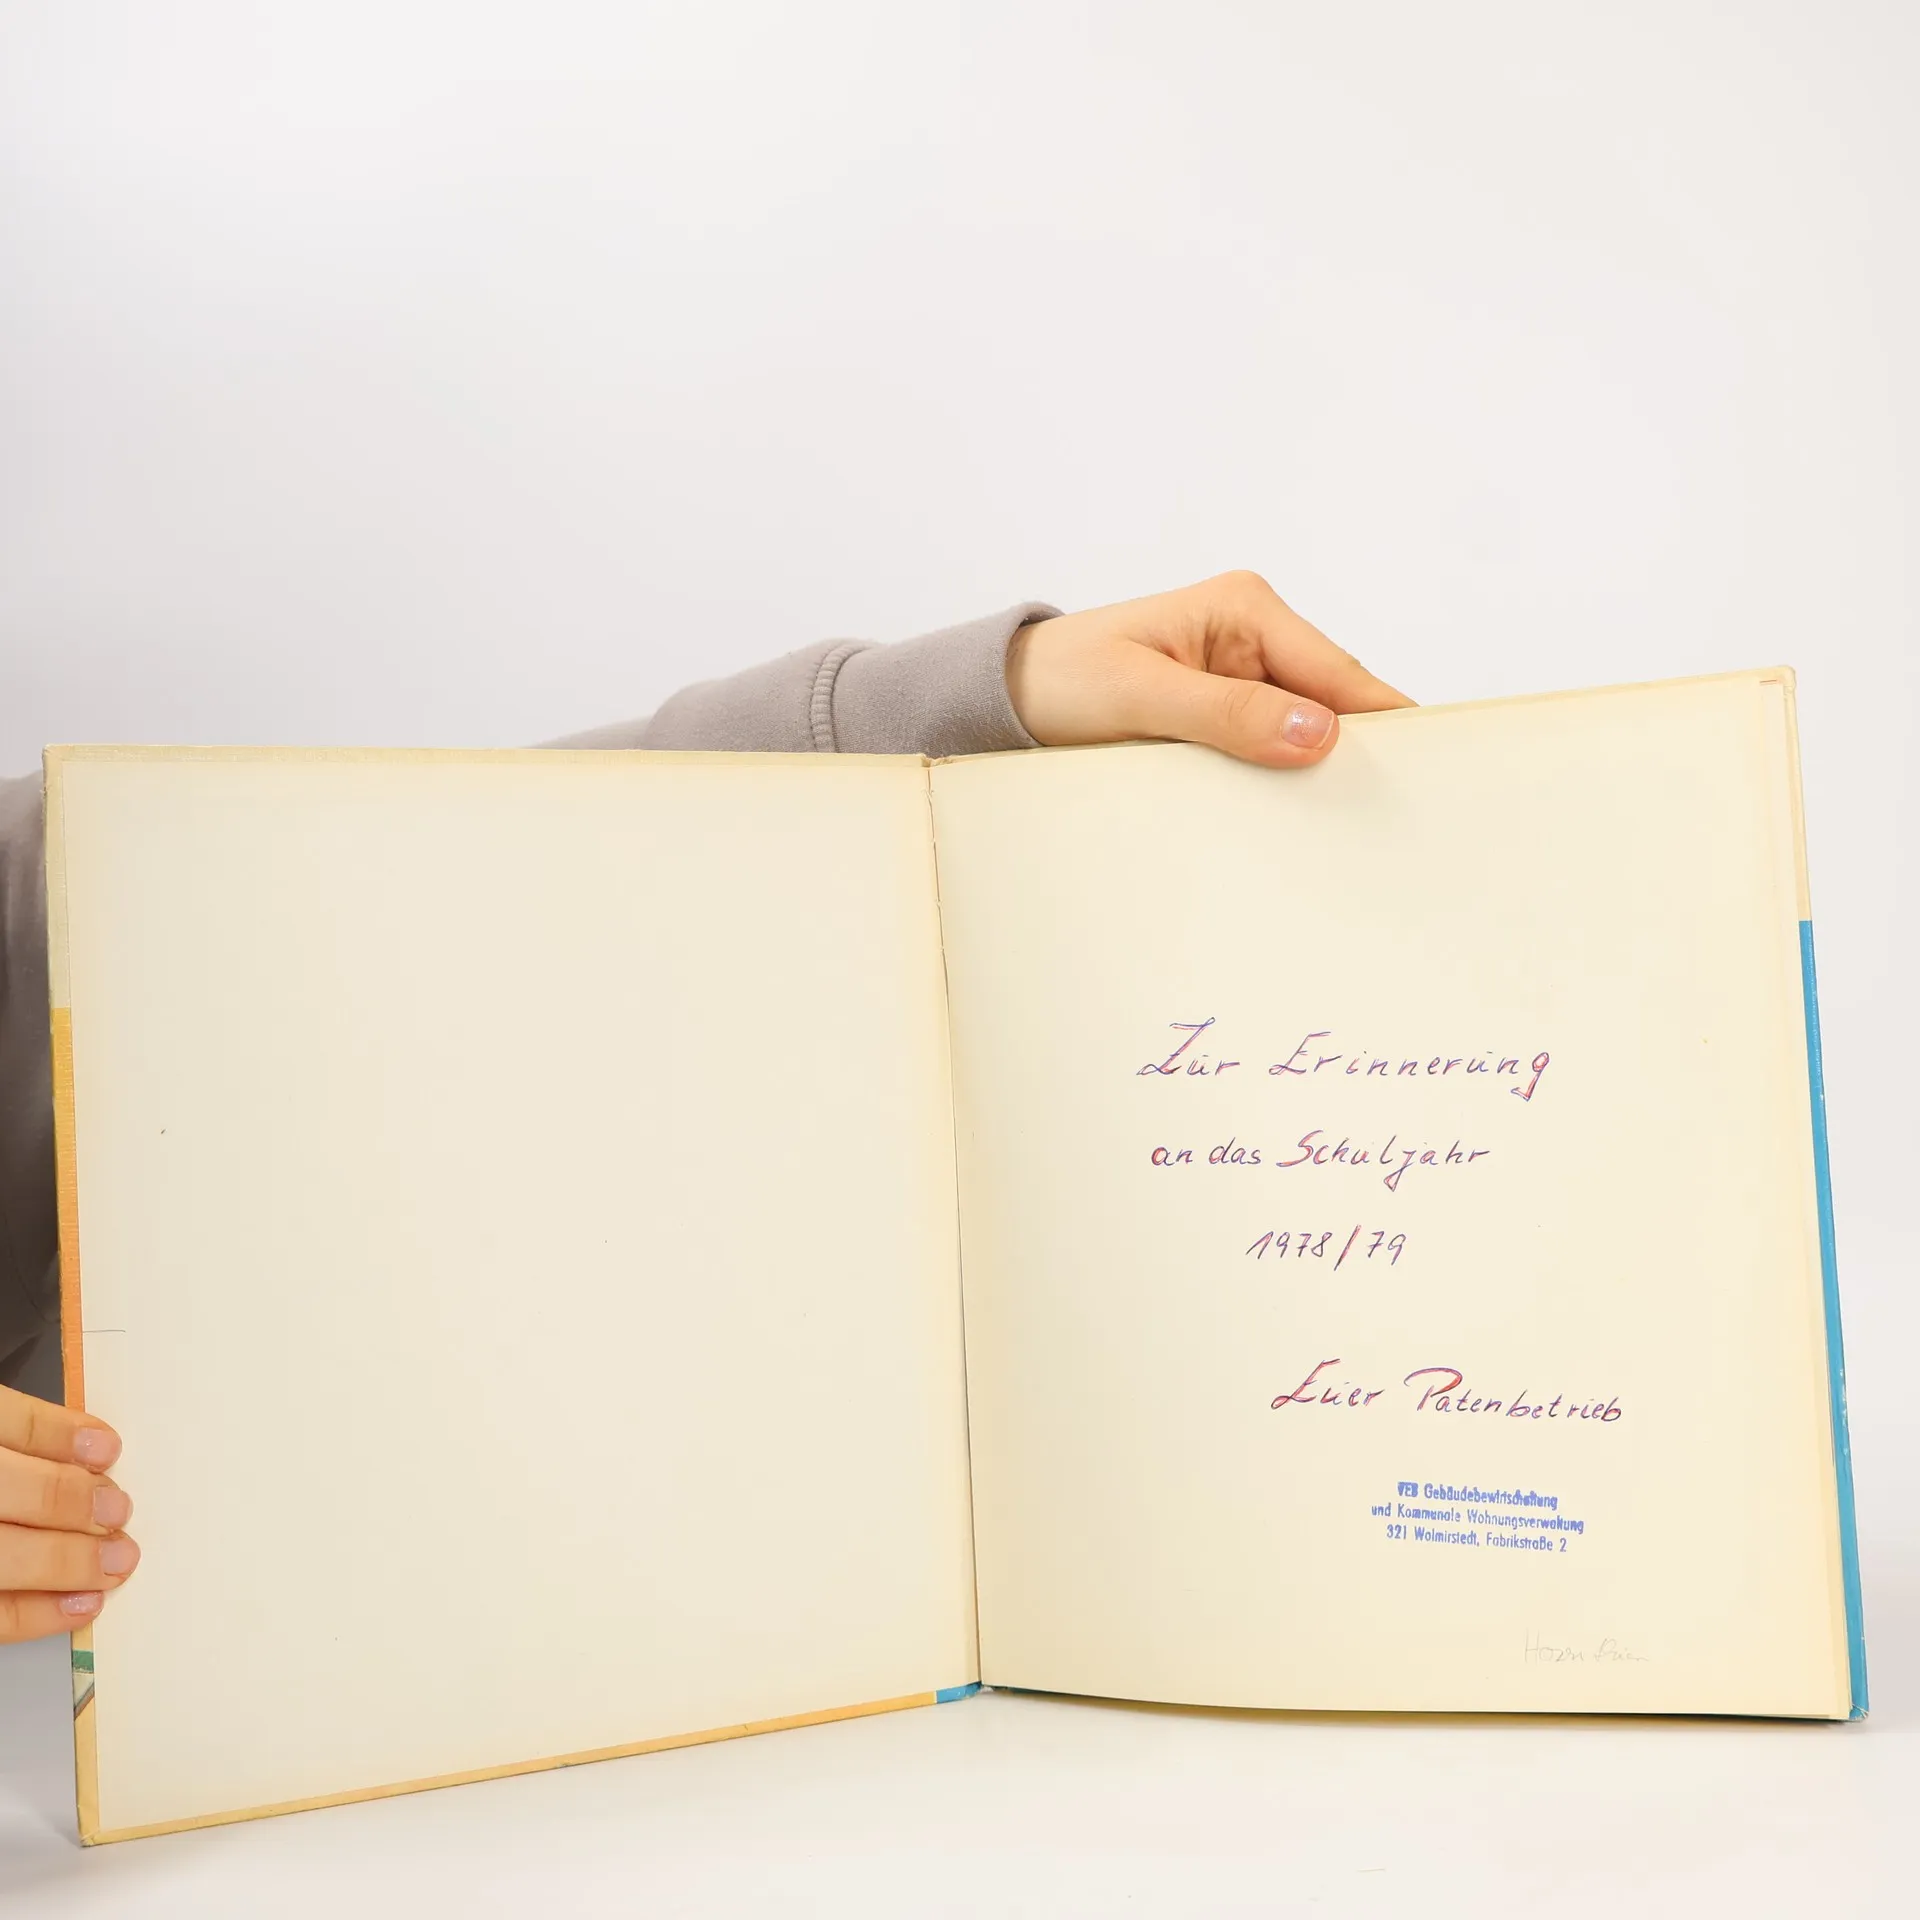 Zur Erinnerung
an das Schuljahr
1978/79
Euer Patenbetrieb
VEB Gebäudebewirtschaftung
und Kommunale Wohnungsverwaltung
321 Wolmirstedt, Fabrikstraße 2